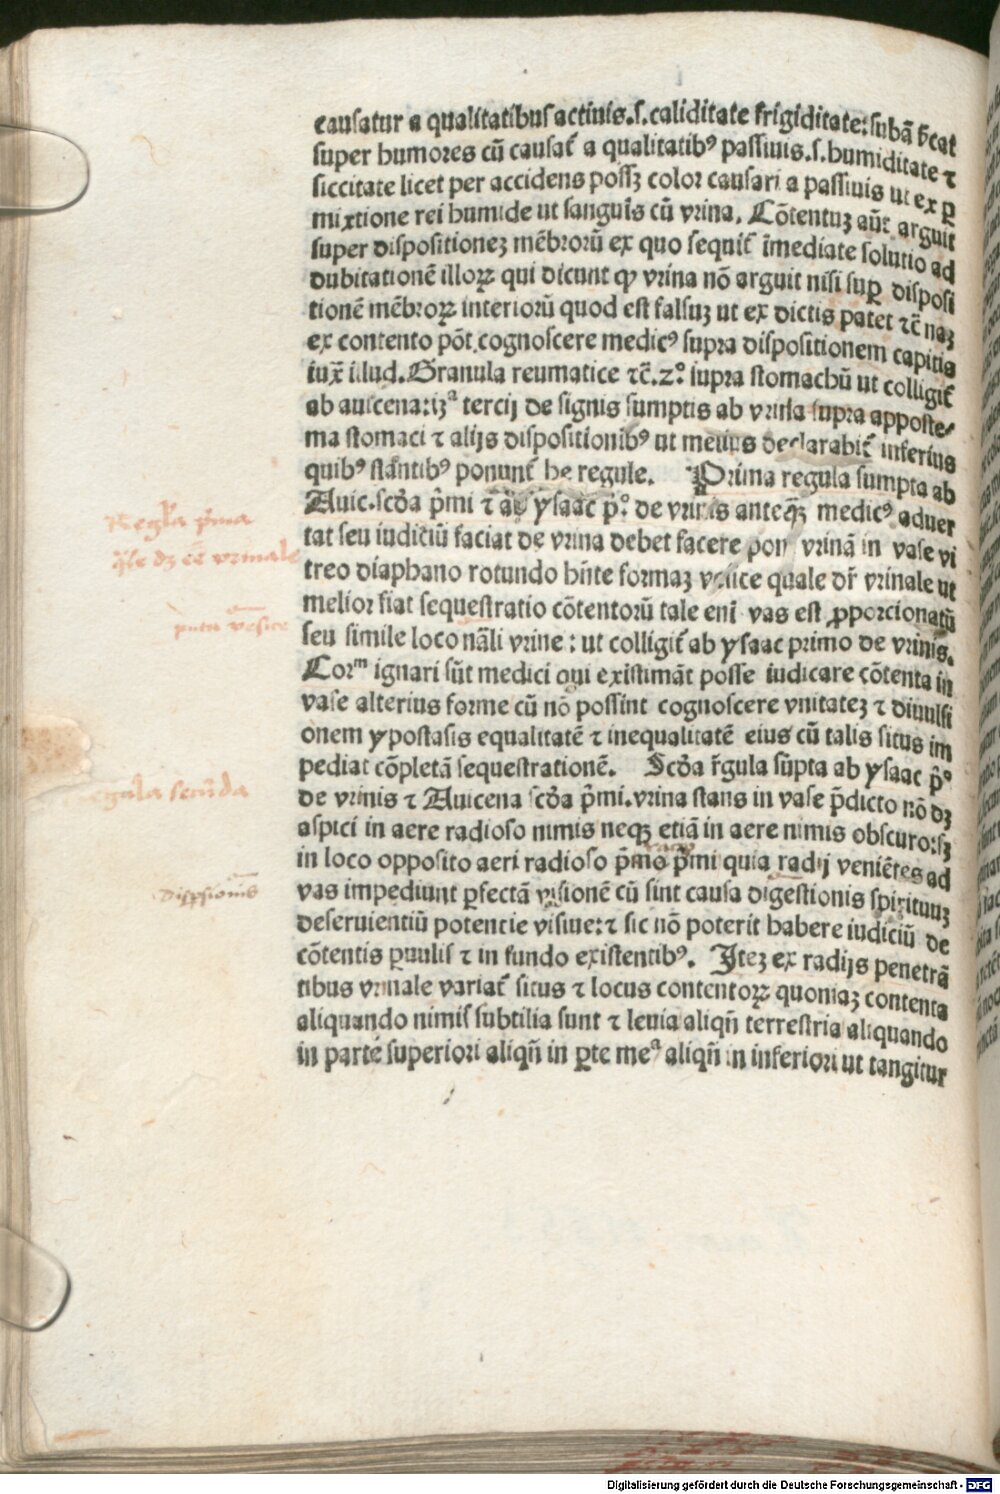 causatur a qualitatibus actiuis.s.caliditate frigiditate:subā
super humores cū causat᷑ a qualitatibꝰ passiuis.s.humiditate ⁊
siccitate licet per accidens possꝫ color causari a passiuis ut ex ꝑ
mixtione rei humide ut sanguis cū vrina. Cōtentuꝫ aūt arguit
super dispositioneꝫ mēbrorū ex quo sequit᷑ īmediate solutio ad
dubitationē illoꝝ qui dicunt ꝙ vrina nō arguit nisi suꝑ disposi
tionē mēbroꝝ interiorū quod est falsuꝫ ut ex dictis patet ⁊c̄ naꝫ
ex contento pōt cognoscere medicꝰ supra dispositionem capitis
iux̄ illud. Granula reumatice ⁊c̄.2° iupra stomachū ut colligit᷑
ab auicena tercij de signis sumptis ab vrina supra apposte⸗
ma stomaci ⁊ alijs dispositionibꝰ ut melius declarabit᷑ inferius
quibꝰ stantibꝰ ponunt᷑ he regule. Prima regula sumpta ab
Auic.scd̄a p̄mi ⁊ ysaac p̄° de vrinis anteqꝫ medicꝰ aduer
tat seu iudiciū faciat de vrina debet facere poni vrinā in vase vi
treo diaphano rotundo hn̄te formaꝫ vesice quale dr̄ vrinale ut
melior fiat sequestratio cōtentorū tale enī vas est ꝓporcionatū
seu simile loco nāli vrine : ut colligit᷑ ab ysaac primo de vrinis.
Corᵐ ignari sūt medici qui existimāt posse iudicare cōtenta in
vase alterius forme cū nō possint cognoscere vnitateꝫ ⁊ diuulsi
onem ypostasis equalitatē ⁊ inequalitatē eius cū talis situs im
pediat cōpletā sequestrationē. Scd̄a r̄gula sūpta ab ysaac p̄°
de vrinis ⁊ Auicena scd̄a p̄mi.vrina stans in vase p̄dicto nō dꝫ
aspici in aere radioso nimis neqꝫ etiā in aere nimis obscuro:sꝫ
in loco opposito aeri radioso p̄mo p̄mi quia radij veniētes ad
vas impediunt ꝑfectā visionē cū sint causa digestionis spirituuꝫ
deseruientiū potentie visiue:⁊ sic nō poterit habere iudiciū de
cōtentis ꝑuulis ⁊ in fundo existentibꝰ. Iteꝫ ex radijs penetrā
tibus vrinale variat᷑ situs ⁊ locus contentoꝝ quoniaꝫ contenta
aliquando nimis subtilia sunt ⁊ leuia aliqn̄ terrestria aliquando
in parte superiori aliqn̄ in ꝑte meᵃ aliqn̄ in inferiori ut tangitur
Regl̄a p̄ma
q̄le dꝫ eē vrinale
vesice
regula secūda
Digitalisierung gefördert durch die Deutsche Forschungsgemeinschaft - DFG